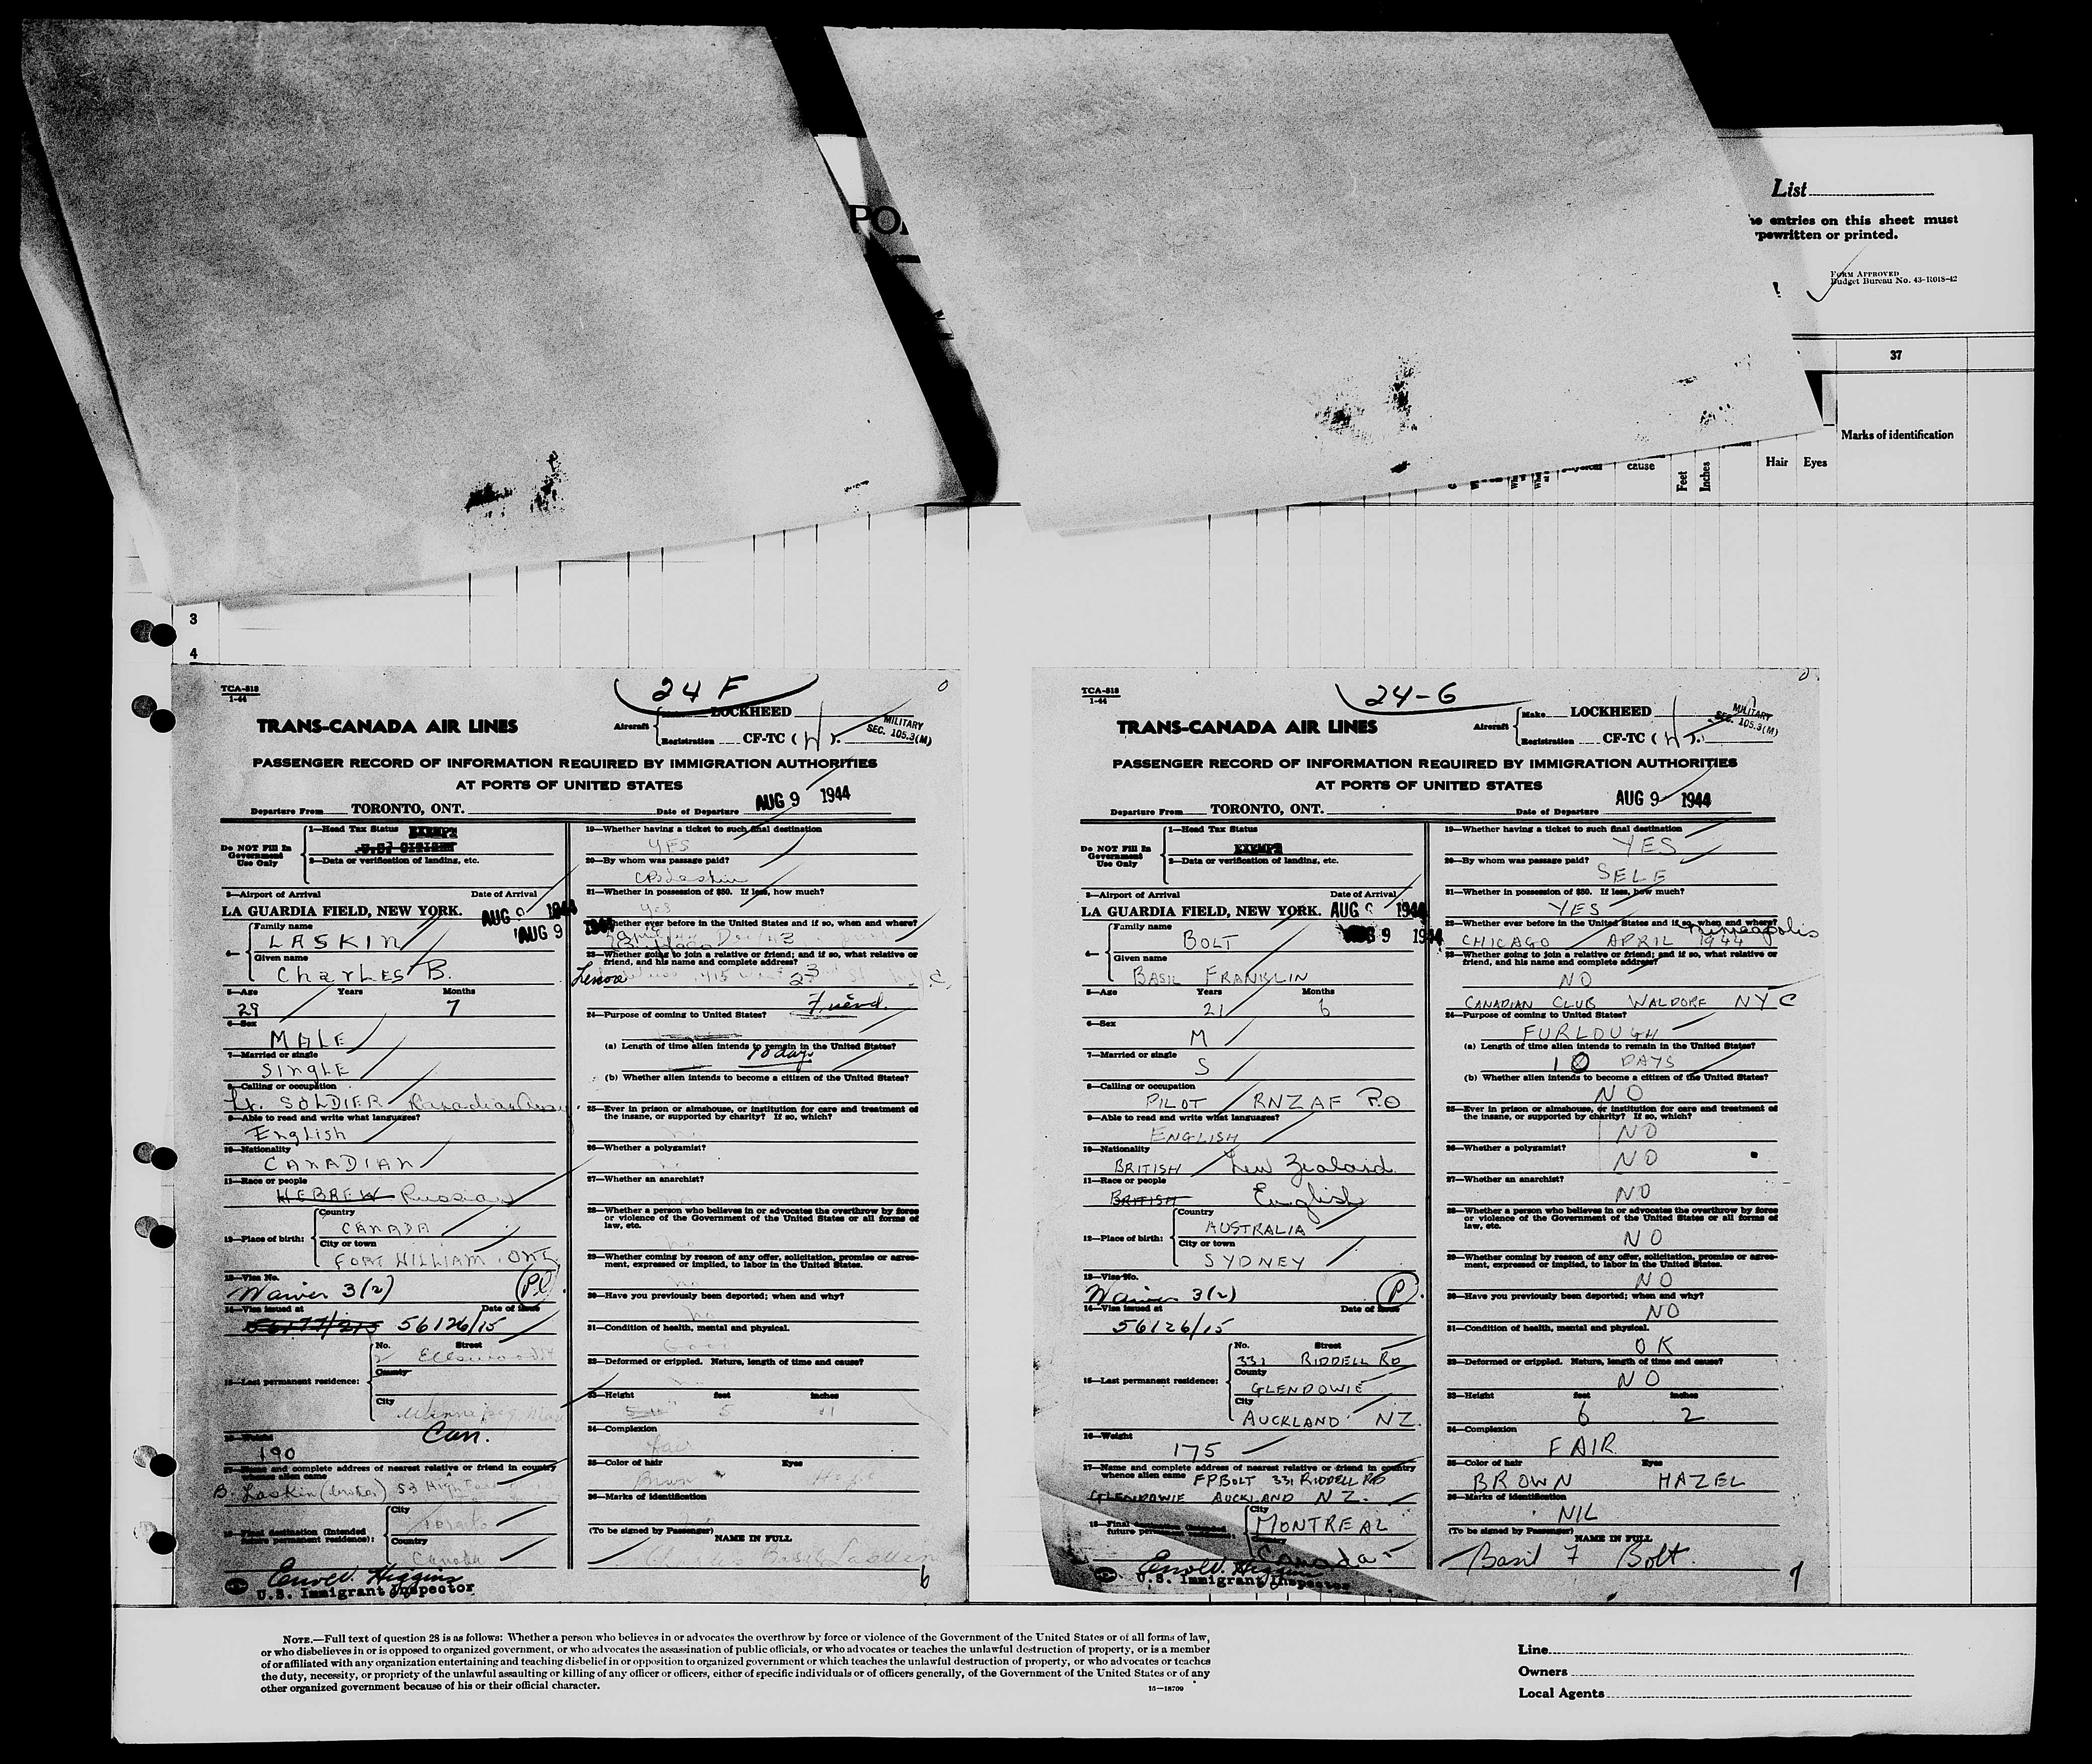 PO
List
entries on this sheet must
typewritten or printed.
FORM APPROVED
Budget Bureau No. 43-R018-42
37
Marks of identification
cause
Feet
Inches
Hair Eyes
3
4
TCA-818
1-44
24 F
TRANS-CANADA AIR LINES
Aircraft
Make LOCKHEED
Registration CF-TC ( H ).
MILITARY
SEC. 105.3(M)
PASSENGER RECORD OF INFORMATION REQUIRED BY IMMIGRATION AUTHORITIES
AT PORTS OF UNITED STATES
Departure From TORONTO, ONT. Date of Departure AUG 9 1944
Do NOT Fill In
Government
Use Only
1—Head Tax Status EXEMPT
U.S. CITIZEN
2—Data or verification of landing, etc.
3—Airport of Arrival Date of Arrival
LA GUARDIA FIELD, NEW YORK. AUG 9 1944
AUG 9 1944
4— Family name
LASKIN
Given name
CharLES B.
5—Age Years Months
29 7
6—Sex
MALE
7—Married or single
SINGLE
8—Calling or occupation
Lt. SOLDIER Canadian Army
9—Able to read and write what languages?
English
10—Nationality
CANADIAN
11—Race or people
HEBREW Russian
12—Place of birth:
Country
CANADA
City or town
FORT WILLIAM, ONT.
13—Visa No.
Waiver 3(2) (Pl)
14—Visa issued at Date of Issue
56177/215 56126/15
15—Last permanent residence:
No. Street
County
City
Winnipeg, Man
Can.
16—Weight
190
17—Name and complete address of nearest relative or friend in country
whence alien came
B. Laskin (brother) 53 High
18—Final destination (Intended
future permanent residence):
City
Toronto
Country
Canada
Errol V. Higgins
U.S. Immigrant Inspector
19—Whether having a ticket to such final destination
YES
20—By whom was passage paid?
CB Laskin
21—Whether in possession of $50. If less, how much?
Yes
22—Whether ever before in the United States and if so, when and where?
Dec/43
23—Whether going to join a relative or friend; and if so, what relative or
friend, and his name and complete address?
Lenox
Friend.
24—Purpose of coming to United States?
(a) Length of time alien intends to remain in the United States?
10 days
(b) Whether alien intends to become a citizen of the United States?
25—Ever in prison or almshouse, or institution for care and treatment of
the insane, or supported by charity? If so, which?
no
26—Whether a polygamist?
no
27—Whether an anarchist?
no
28—Whether a person who believes in or advocates the overthrow by force
or violence of the Government of the United States or all forms of
law, etc.
no
29—Whether coming by reason of any offer, solicitation, promise or agree-
ment, expressed or implied, to labor in the United States.
no
30—Have you previously been deported; when and why?
no
31—Condition of health, mental and physical.
Good
32—Deformed or crippled. Nature, length of time and cause?
33—Height feet inches
5 11
34—Complexion
Fair
35—Color of hair Eyes
Brown Hazel
36—Marks of identification
(To be signed by Passenger) NAME IN FULL
Charles Basil Laskin
6
TCA-818
1-44
24-G
TRANS-CANADA AIR LINES
Aircraft
Make LOCKHEED
Registration CF-TC ( H ).
MILITARY
SEC. 105.3(M)
PASSENGER RECORD OF INFORMATION REQUIRED BY IMMIGRATION AUTHORITIES
AT PORTS OF UNITED STATES
Departure From TORONTO, ONT. Date of Departure AUG 9 1944
Do NOT Fill In
Government
Use Only
1—Head Tax Status
EXEMPT
2—Data or verification of landing, etc.
3—Airport of Arrival Date of Arrival
LA GUARDIA FIELD, NEW YORK. AUG 9 1944
AUG 9 1944
4— Family name
BOLT
Given name
BASIL FRANKLIN
5—Age Years Months
21 6
6—Sex
M
7—Married or single
S
8—Calling or occupation
PILOT RNZAF P.O
9—Able to read and write what languages?
ENGLISH
10—Nationality
BRITISH New Zealand
11—Race or people
BRITISH English
12—Place of birth:
Country
AUSTRALIA
City or town
SYDNEY
13—Visa No.
Waiver 3(2) (P).
14—Visa issued at Date of Issue
56126/15
15—Last permanent residence:
No. Street
331 RIDDELL RD
County
GLENDOWIE
City
AUCKLAND NZ.
16—Weight
175
17—Name and complete address of nearest relative or friend in country
whence alien came FPBOLT 331 RIDDELL RD
GLENDOWIE AUCKLAND NZ.
18—Final destination (Intended
future permanent residence):
City
MONTREAL
Canada
Errol V. Higgins
U.S. Immigrant Inspector
19—Whether having a ticket to such final destination
YES
20—By whom was passage paid?
SELF
21—Whether in possession of $50. If less, how much?
YES
22—Whether ever before in the United States and if so, when and where?
Minneapolis
CHICAGO APRIL 1944
23—Whether going to join a relative or friend; and if so, what relative or
friend, and his name and complete address?
NO
CANADIAN CLUB WALDORF NYC
24—Purpose of coming to United States?
FURLOUGH
(a) Length of time alien intends to remain in the United States?
10 DAYS
(b) Whether alien intends to become a citizen of the United States?
NO
25—Ever in prison or almshouse, or institution for care and treatment of
the insane, or supported by charity? If so, which?
NO
26—Whether a polygamist?
NO
27—Whether an anarchist?
NO
28—Whether a person who believes in or advocates the overthrow by force
or violence of the Government of the United States or all forms of
law, etc.
NO
29—Whether coming by reason of any offer, solicitation, promise or agree-
ment, expressed or implied, to labor in the United States.
NO
30—Have you previously been deported; when and why?
NO
31—Condition of health, mental and physical.
OK
32—Deformed or crippled. Nature, length of time and cause?
NO
33—Height feet inches
6 2
34—Complexion
FAIR
35—Color of hair Eyes
BROWN HAZEL
36—Marks of identification
NIL
(To be signed by Passenger) NAME IN FULL
Basil F Bolt.
7
NOTE.—Full text of question 28 is as follows: Whether a person who believes in or advocates the overthrow by force or violence of the Government of the United States or of all forms of law,
or who disbelieves in or is opposed to organized government, or who advocates the assassination of public officials, or who advocates or teaches the unlawful destruction of property, or is a member
of or affiliated with any organization entertaining and teaching disbelief in or opposition to organized government or which teaches the unlawful destruction of property, or who advocates or teaches
the duty, necessity, or propriety of the unlawful assaulting or killing of any officer or officers, either of specific individuals or of officers generally, of the Government of the United States or of any
other organized government because of his or their official character.
15—18709
Line
Owners
Local Agents